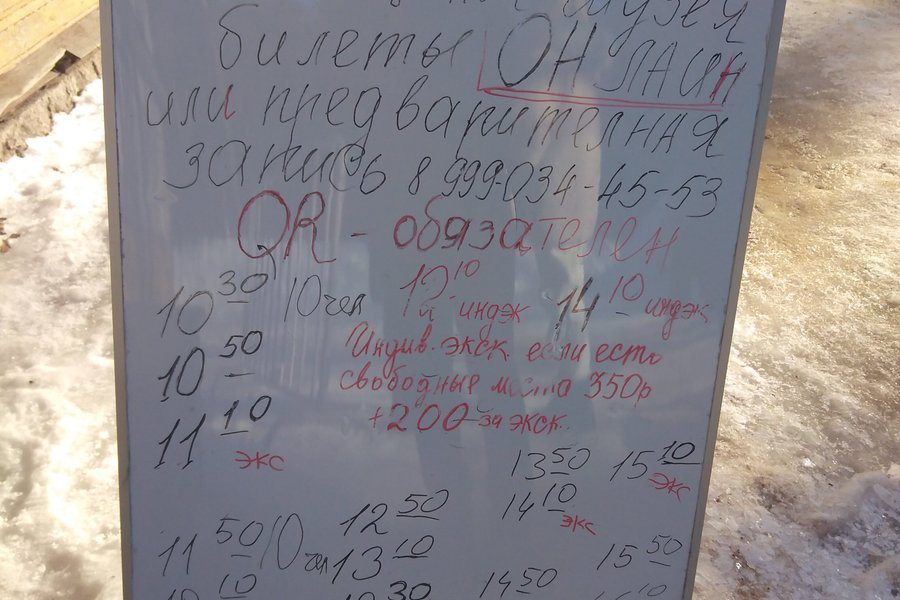 музея
билеты ОН ЛАИН
или предварителння
запись 8 999-034-45-53
QR - обязателен
10 30 10 чел 12 10 индэк 14 10 индэк
10 50 Индив. экск. если есть
свободные места 350р
11 10 +200 за экск.
экс 13 50 15 10
экс
12 50 14 10
экс
11 50 10 чел 13 10 15 50
10 30 14 50